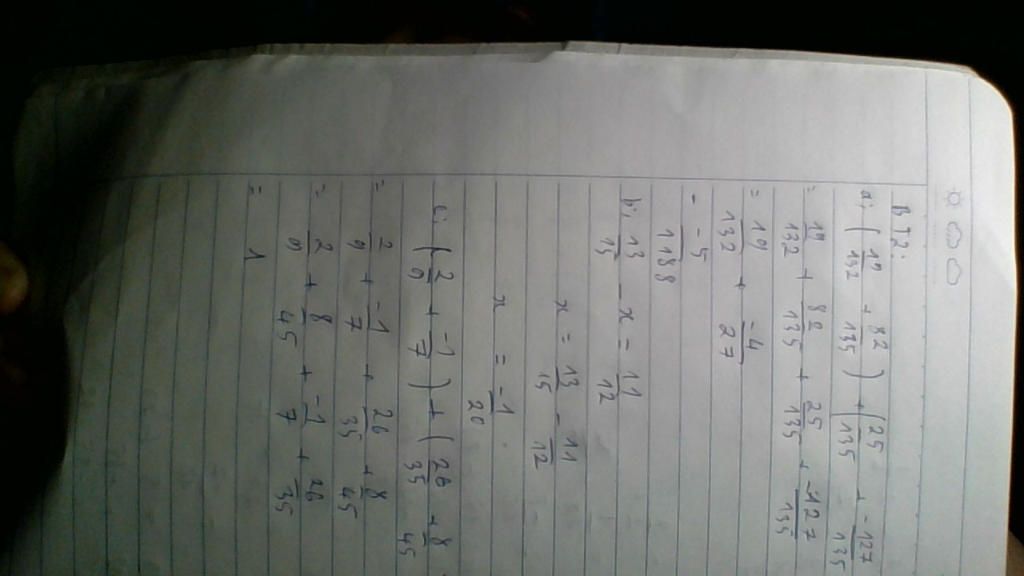 BT2:
a; (19/132 + 82/135) + (25/135 + -127/135
= 19/132 + 82/135 + 25/135 + -127/135
= 19/132 + -4/27
= -5/1188
b; 13/15 - x = 11/12
x = 13/15 - 11/12
x = -1/20
c; (2/9 + -1/7) + (26/35 + 8/45
= 2/9 + -1/7 + 26/35 + 8/45
= 2/9 + 8/45 + -1/7 + 26/35
= 1